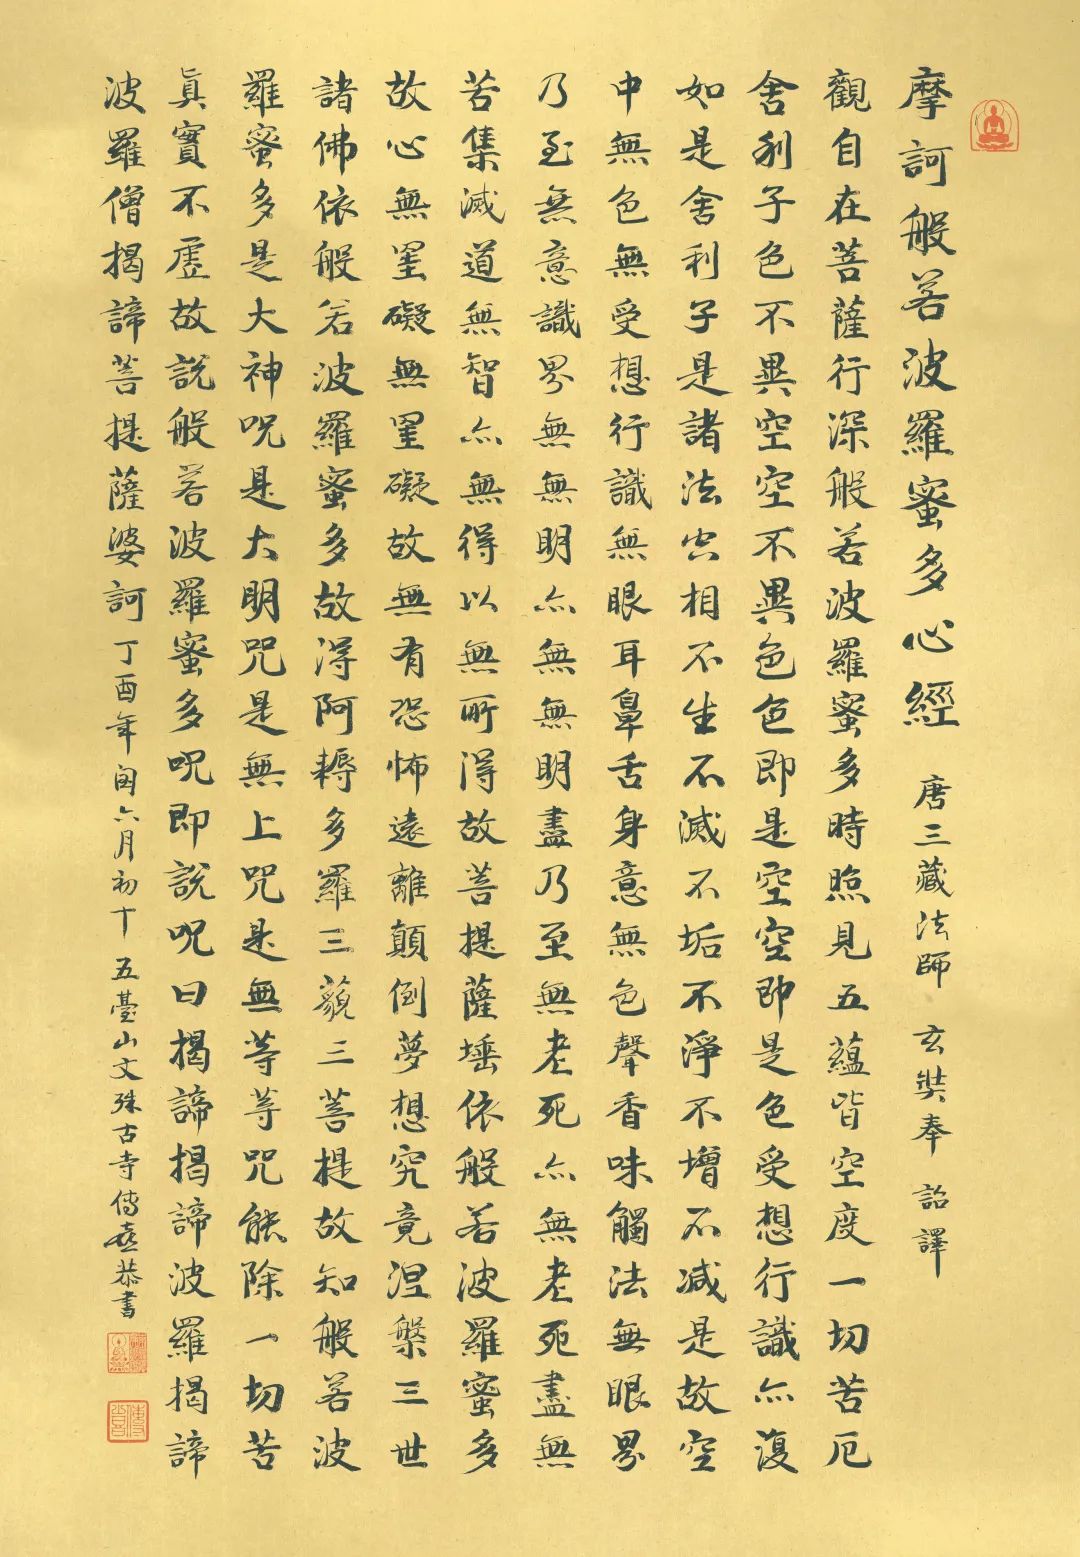 摩訶般若波羅蜜多心經 唐三藏法師 玄奘奉 詔譯
觀自在菩薩行深般若波羅蜜多時照見五蘊皆空度一切苦厄
舍利子色不異空空不異色色即是空空即是色受想行識亦復
如是舍利子是諸法空相不生不滅不垢不淨不增不減是故空
中無色無受想行識無眼耳鼻舌身意無色聲香味觸法無眼界
乃至無意識界無無明亦無無明盡乃至無老死亦無老死盡無
苦集滅道無智亦無得以無所得故菩提薩埵依般若波羅蜜多
故心無罣礙無罣礙故無有恐怖遠離顛倒夢想究竟涅槃三世
諸佛依般若波羅蜜多故得阿耨多羅三藐三菩提故知般若波
羅蜜多是大神呪是大明咒是無上咒是無等等咒能除一切苦
眞實不虛故說般若波羅蜜多呪即說呪曰揭諦揭諦波羅揭諦
波羅僧揭諦菩提薩婆訶 丁酉年閏六月初十 五臺山文殊古寺傳恭書